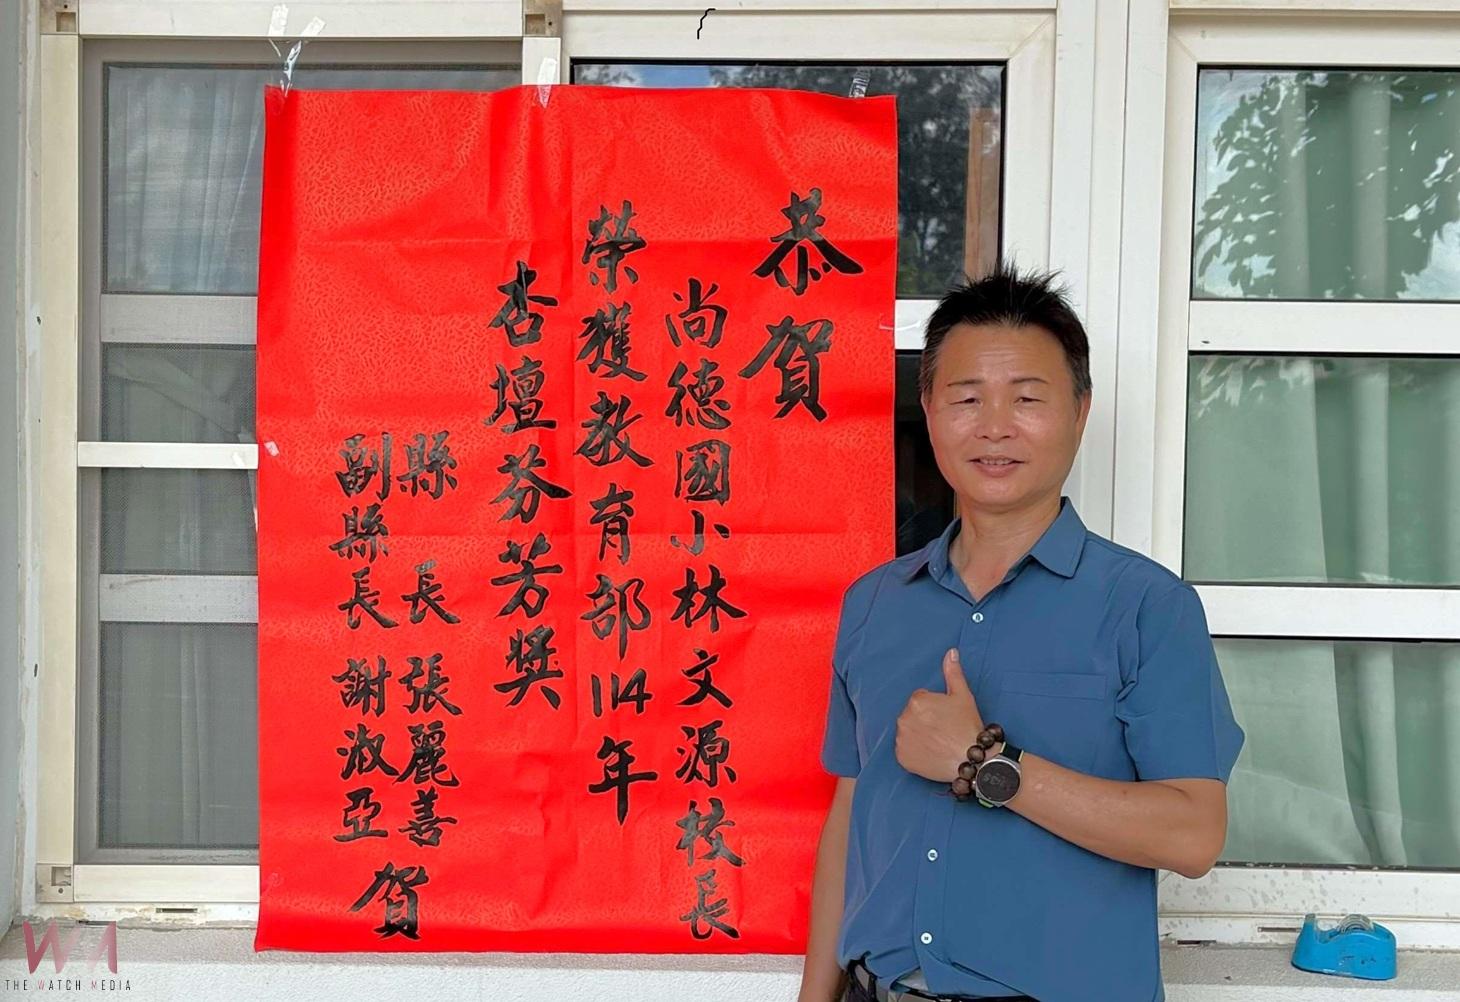 恭賀
尚德國小林文源校長
榮獲教育部114年
杏壇芬芳獎
縣長張麗善
副縣長謝淑亞
賀
WA
THE WATCH MEDIA